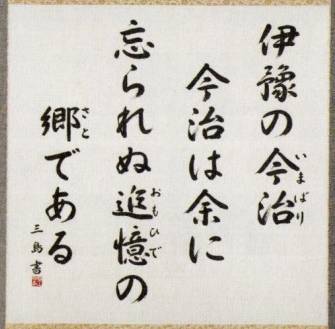 伊豫の今治
いまばり
今治は余に
忘られぬ追憶の
おもひで
郷である
さと
三鳥書